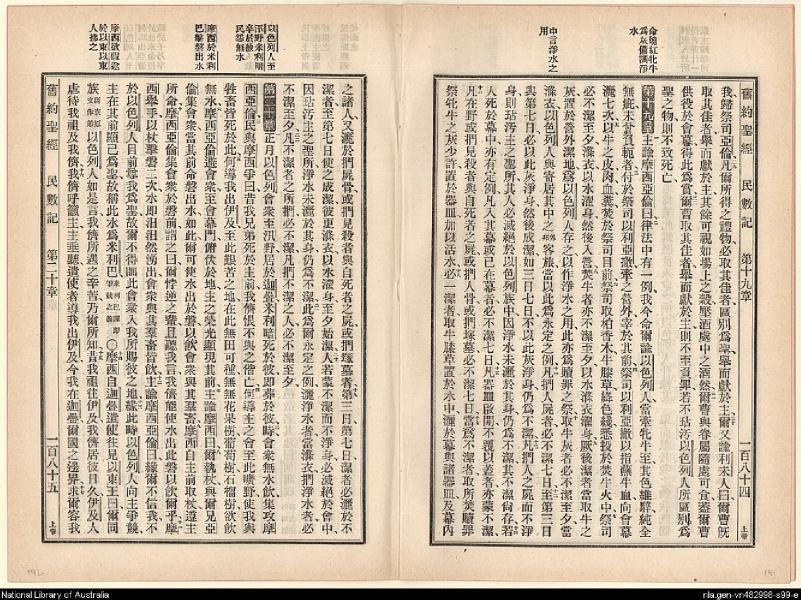 舊約聖經 民數記 第十九章 一百八十四 上帝
命燒紅牝牛為灰備滌淨水
中言淨水之用
我歸祭司亞倫凡爾所得之禮物必取其佳者區別為聖舉而獻於主又諭利未人曰爾曹既
取其佳者舉而獻於主其餘可視如場上之穀壓酒處中之酒然爾曹與眷屬隨處可食蓋爾曹
供役於會幕得此為賞爾曹取其佳者舉而獻於主則不至負罪若不玷污以色列人所區別為
聖之物則不致死亡
第十九章 主諭摩西亞倫曰律法中有一例我今命爾諭以色列人當牽牝牛至其色維騂純全
無疵未嘗負軛者付於祭司以利亞撒牽之營外宰於其前祭司以利亞撒以指蘸牛血向會幕
灑七次以牛之皮肉血糞焚於祭司目前祭司取柏香木牛膝草絳色綫悉投於焚牛火中祭司
必不潔至夕滌衣以水濯身然後入營焚牛者亦不潔至夕以水滌衣濯身厥後潔者當取牛之
灰置於營外潔地為以色列人存之以作淨水之用此亦為贖罪之祭取牛灰者必不潔至夕當
滌衣以色列人與寄居其中之客族當以此為永定之例凡捫人屍者必不潔七日至第三日
與第七日必以此灰淨身然後成潔如三日七日不以此灰淨身則不為潔凡捫人之屍而不淨
身則玷污主之聖所其人必滅絕於以色列族中因淨水未灑於其身仍為不潔其不潔尙存若
人死於幕中亦有定例凡入其幕或已在幕者必不潔七日凡器皿啟開不覆以蓋者亦蒙不潔
凡在野或捫見殺者與自死者之屍或捫人骨或捫塚墓必不潔七日當為不潔者取所焚贖罪
祭牝牛之灰少許置於器皿加以活水必一潔者取牛膝草置於水中灑於幕與諸器皿及幕內
以色列人至汛野米利暗卒於故民怨無水
摩西於米利巴擊磐出水
摩西欲假道於以東以東人拂之
之諸人又灑於捫屍骨或捫見殺者與自死者之屍或捫塚墓者第三日第七日潔者必灑於不
潔者至第七日使之成潔彼更滌衣以水濯身至夕始潔人若蒙不潔而不淨身必滅絕於會中
因玷污主之聖所淨水未灑於其身仍為不潔此為爾永定之例灑淨水者當滌衣捫淨水者必
不潔至夕凡不潔者之所捫必不潔凡捫不潔之人必不潔至夕
第二十章 正月以色列會眾至汛野居於迦疊米利暗死於彼即葬於彼時會眾無水飲集攻摩
西亞倫民與摩西爭曰昔我兄弟死於主前我儕恨不與之偕亡何導主之會至此曠野使我與
牲畜皆死於此何導我出伊及至此艱苦之地在此無田可種無無花果樹葡萄樹石榴樹欲飲
無水摩西亞倫避會眾至會幕門俯伏於地主之榮光顯現其前主諭摩西曰爾執杖與爾兄亞
倫集會眾當其前命磐出水如此爾可使水出於磐以飲會眾與其羣畜摩西自主前取杖遵主
所命摩西亞倫集會眾於磐前謂之曰爾悖逆之輩且聽我言我儕能使水出此磐以飲爾乎摩
西舉手以杖擊磐二次水即汩汩然湧出會眾與其羣畜皆飲主諭摩西亞倫曰緣爾不信我不
於以色列人目前尊我為聖故爾不得導此會眾入我所賜彼之地緣此時以色列人向主爭競
主在其前顯己為聖故稱此水為米利巴米利巴譯即爭競之義〇摩西自迦疊遣使往見以東王曰爾同
族以色列人如是言我儕所遇之辛苦乃爾所知昔我祖往伊及我儕居彼日久伊及人
虐待我祖及我儕我儕呼籲主主垂聽遣使者導我出伊及今我在迦疊爾國之邊界求爾容我
舊約聖經 民數記 第二十章 一百八十五 上帝
National Library of Australia
nla.gen-vn482998-s99-e